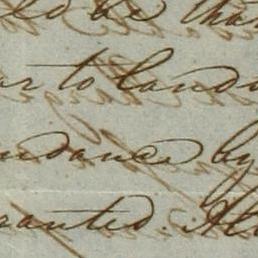 ed be than
or to land
ndance by
ranted. All